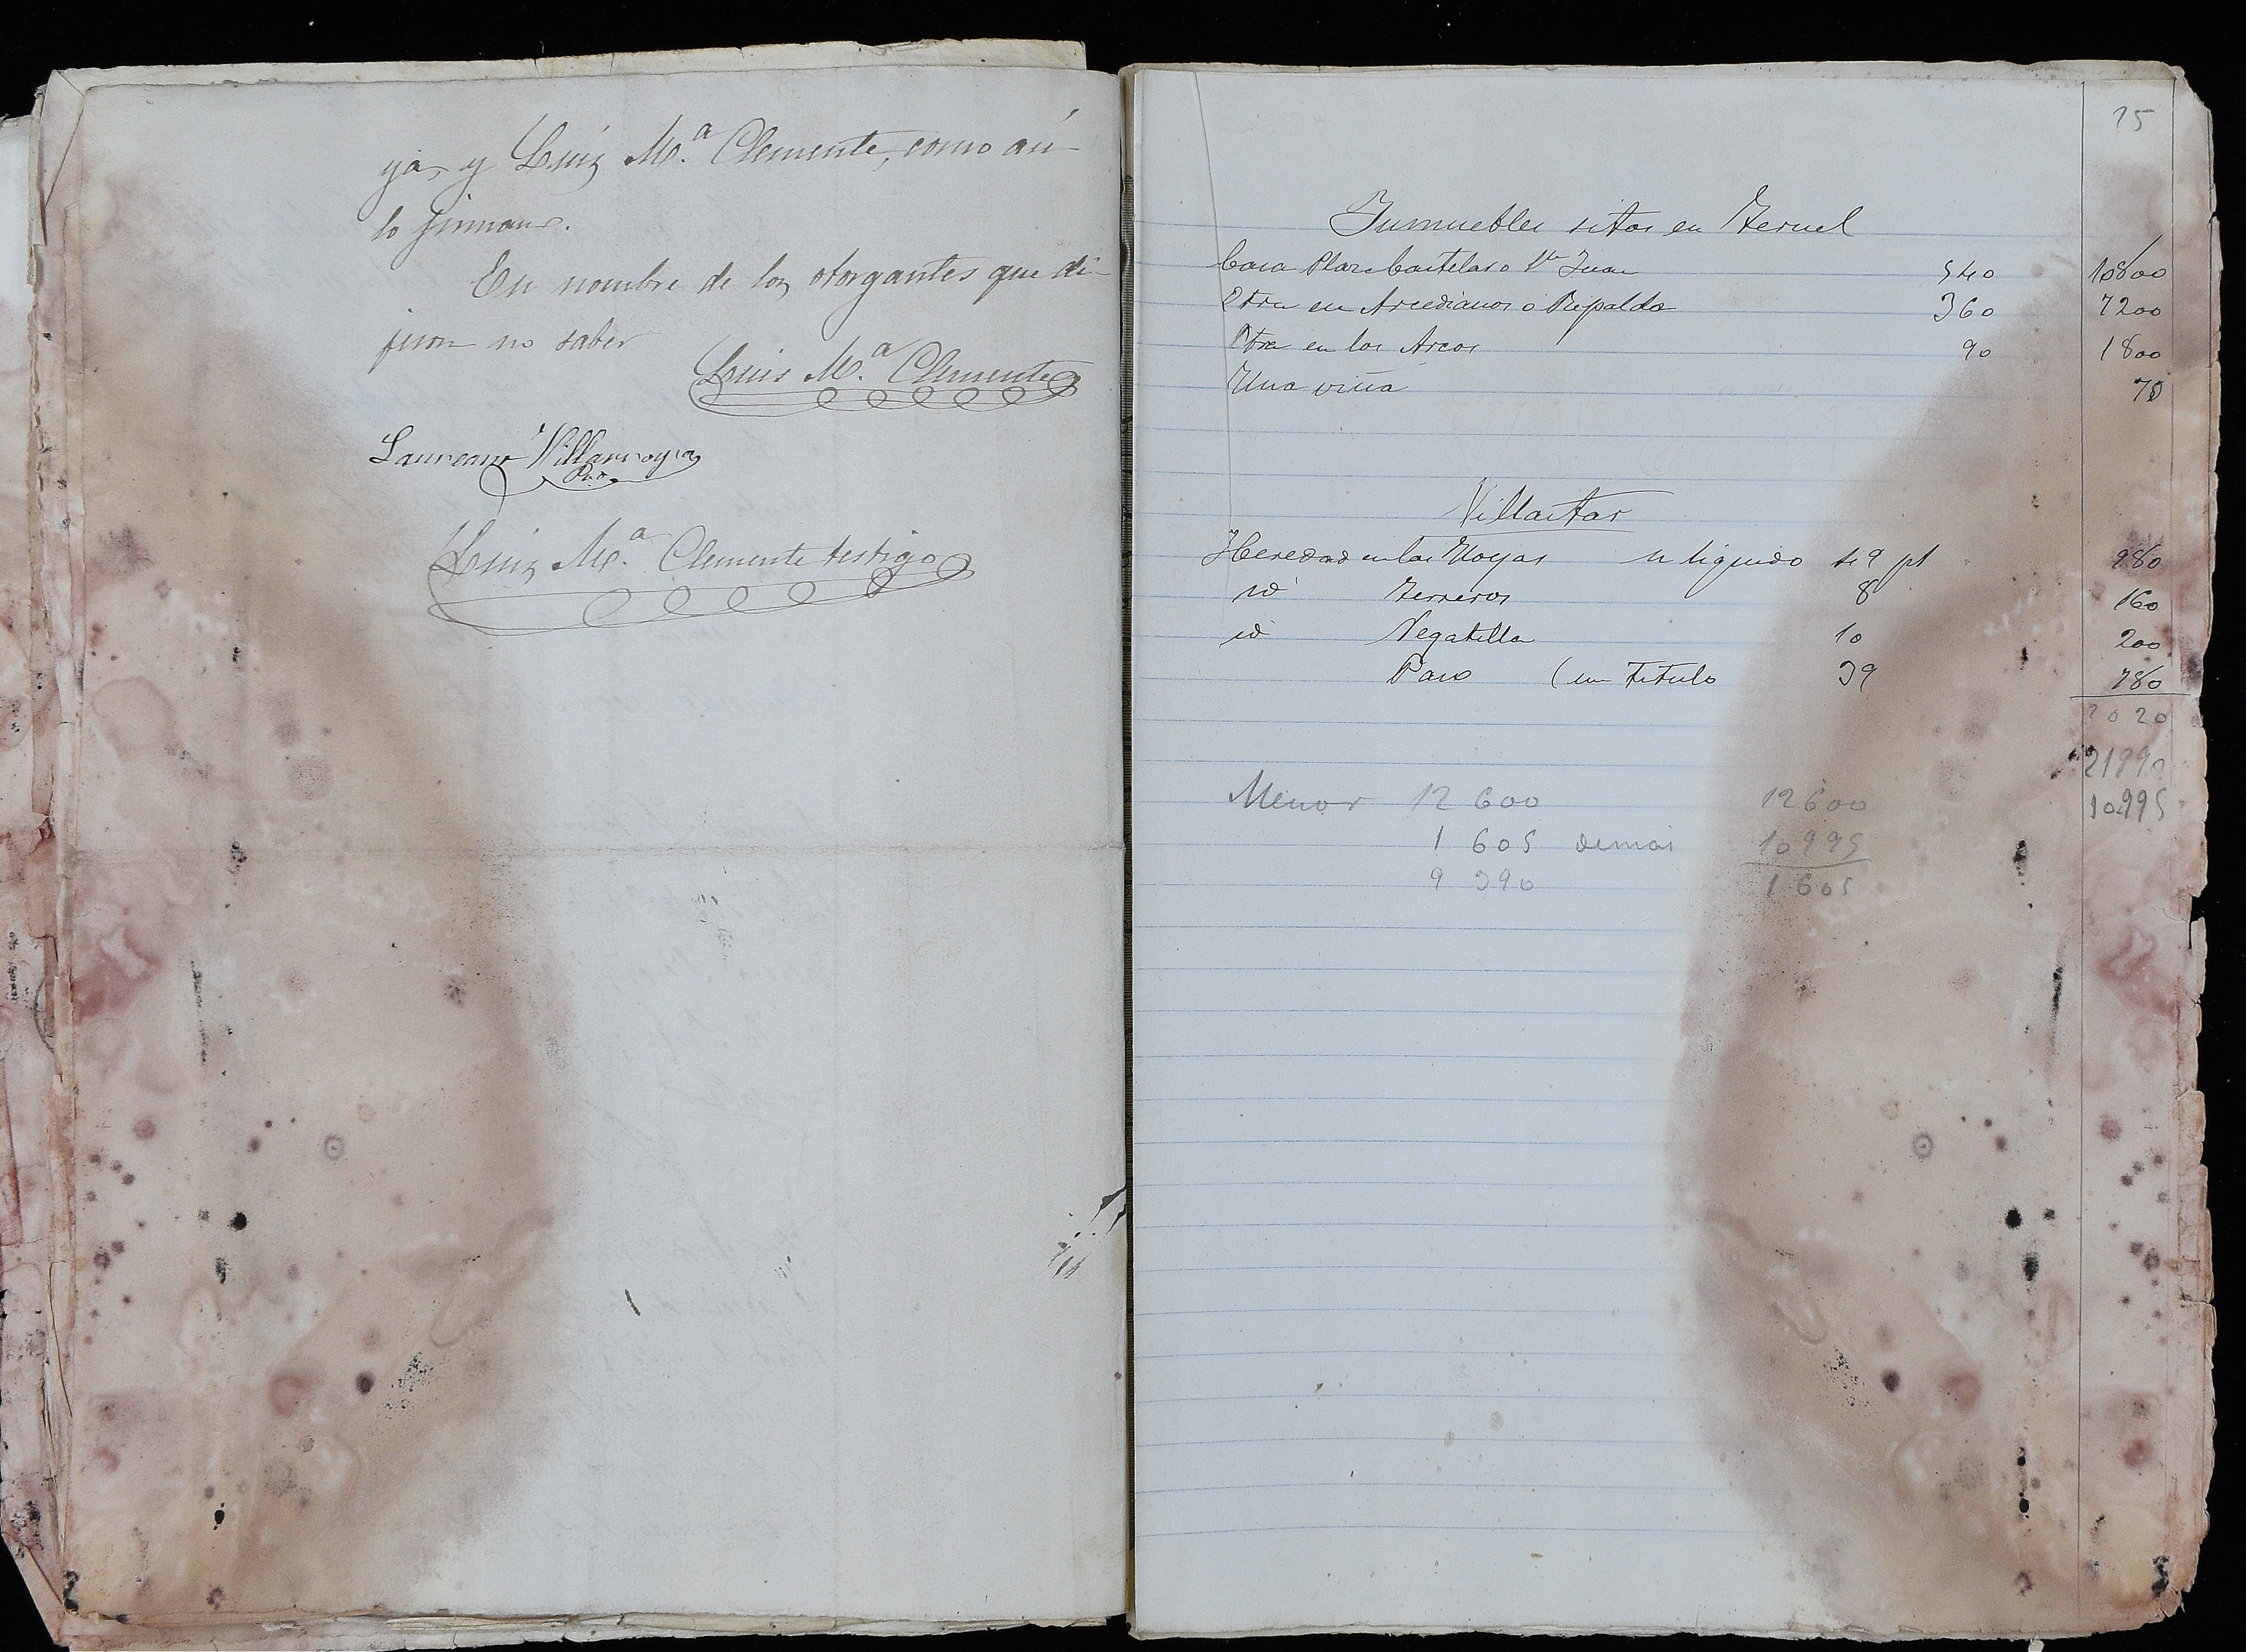 ya, y Luis M.ª Clemente, como así
lo firman.
En nombre de los otorgantes que di-
jeron no saber
Luis M.ª Clemente
Laureano Villarroya
Pbro.
Luis M.ª Clemente testigo
25
Inmuebles sitos en Teruel
Casa Plaza Castelar o Sn Juan 540 10800
Otra en Arcedianos o Ripalda 360 7200
Otra en los Arcos 90 1800
Una viña 70
Villastar
Heredad en las Hoyas líquido 49 pt 980
id Terreros 8 160
id Vegatilla 10 200
Paso (sin titulo 39 780
2020
21990
Menor 12 600 12600 10995
1 605 demas 10995
9 390 1 605